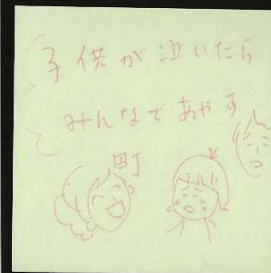 子供が泣いたら
みんなであやす
町